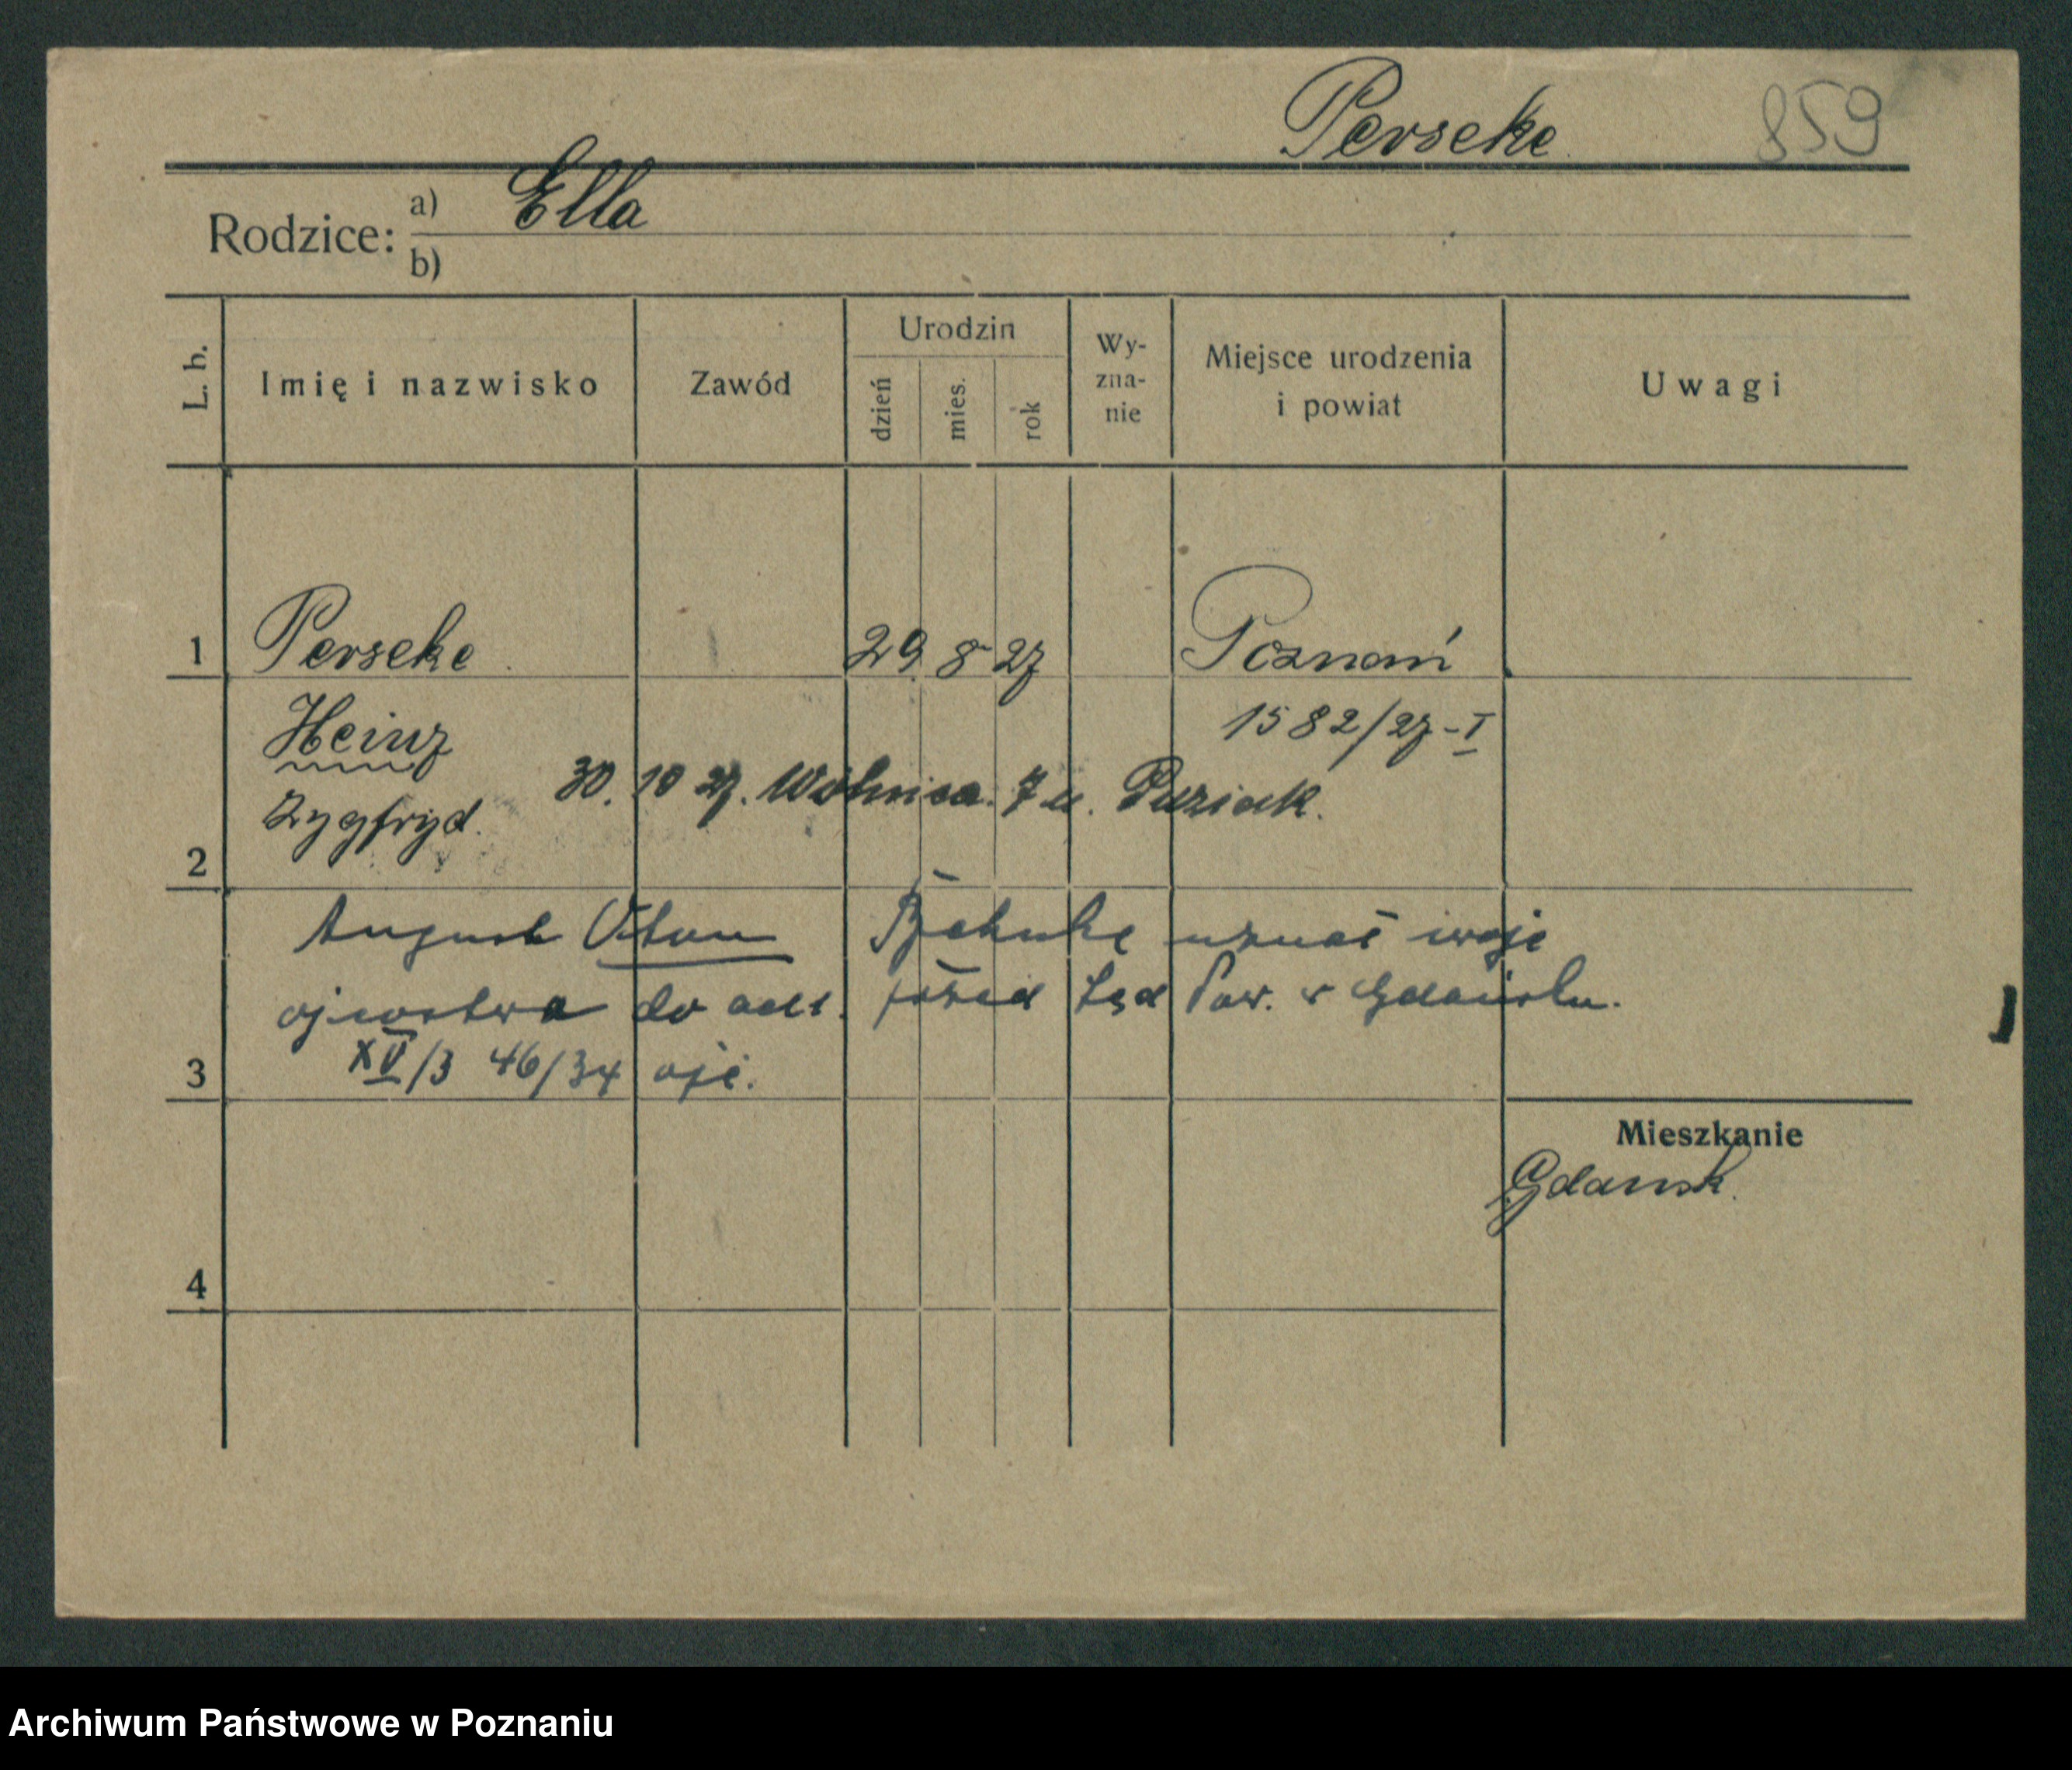 Perseke 859
Rodzice: a) Ella
b)
L. b. Imię i nazwisko Zawód Urodzin dzień mies. rok Wy-zna-nie Miejsce urodzenia i powiat Uwagi
1 Perseke 29 8 27 Poznań
Heinz 1582/27-I
30. 10 27. Wolnica. 7 u. Puziak.
Zygfryd.
2
August Otton uznał swoje
ojcostwo do akt. przed Sąd Pow. w Gdańsku.
3 XV/3 46/34 ojc.
Mieszkanie
Gdansk.
4
Archiwum Państwowe w Poznaniu